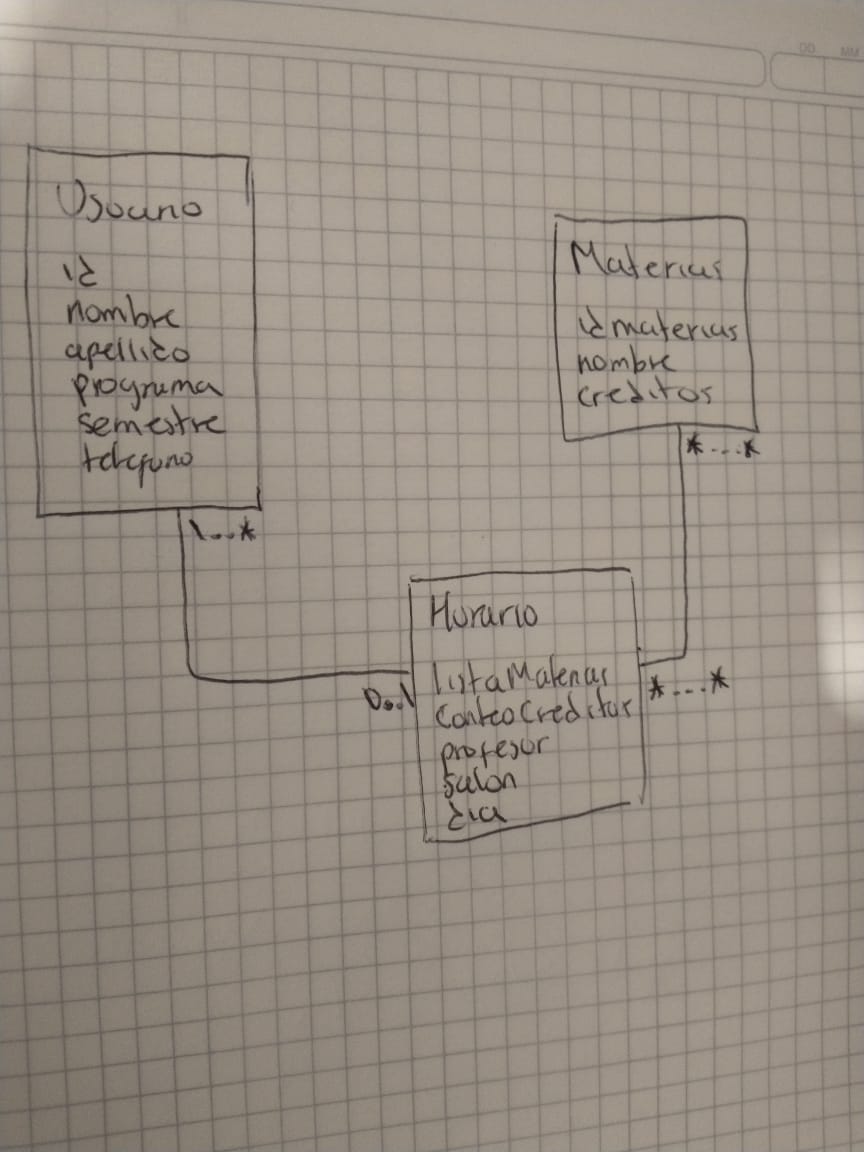 DD MM
Usuario
id
nombre
apellido
programa
semestre
telefono
1...*
Materias
idmaterias
nombre
creditos
*...*
Horario
listaMaterias
ConteoCreditos
profesor
salon
dia
0..1
*...*